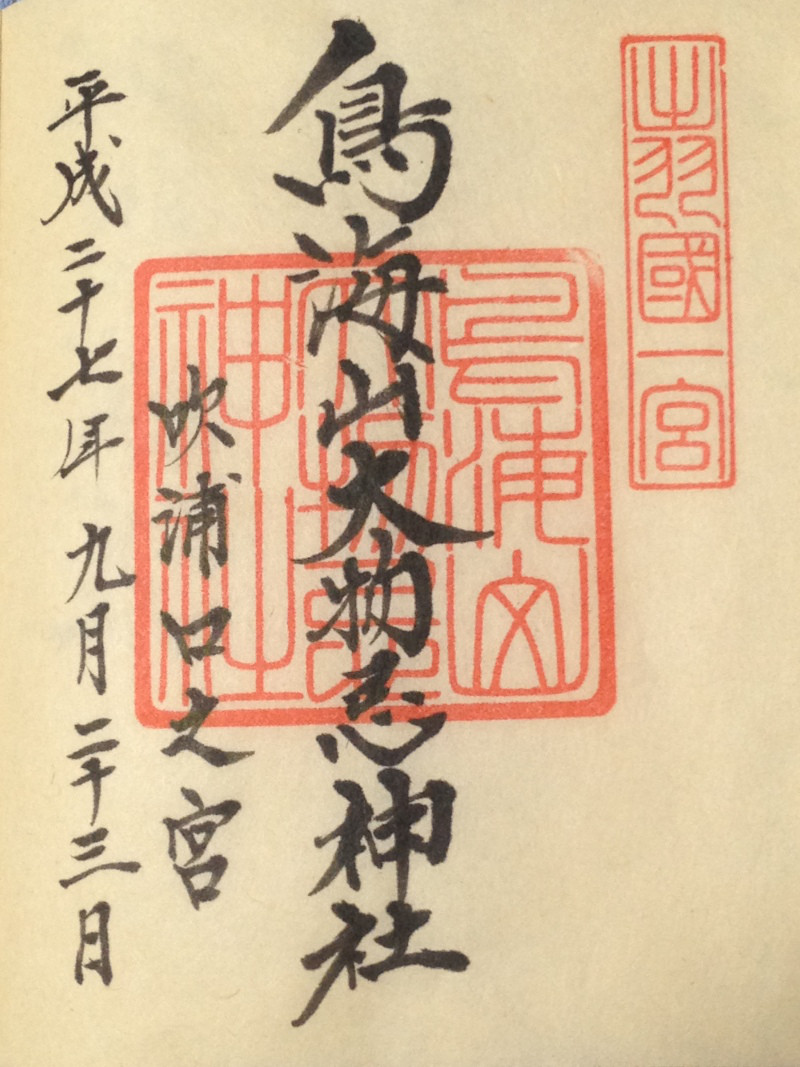 出羽國一宮
鳥海山大物忌神社
鳥海山
大物忌
神社
吹浦口之宮
平成二十七年九月二十三日